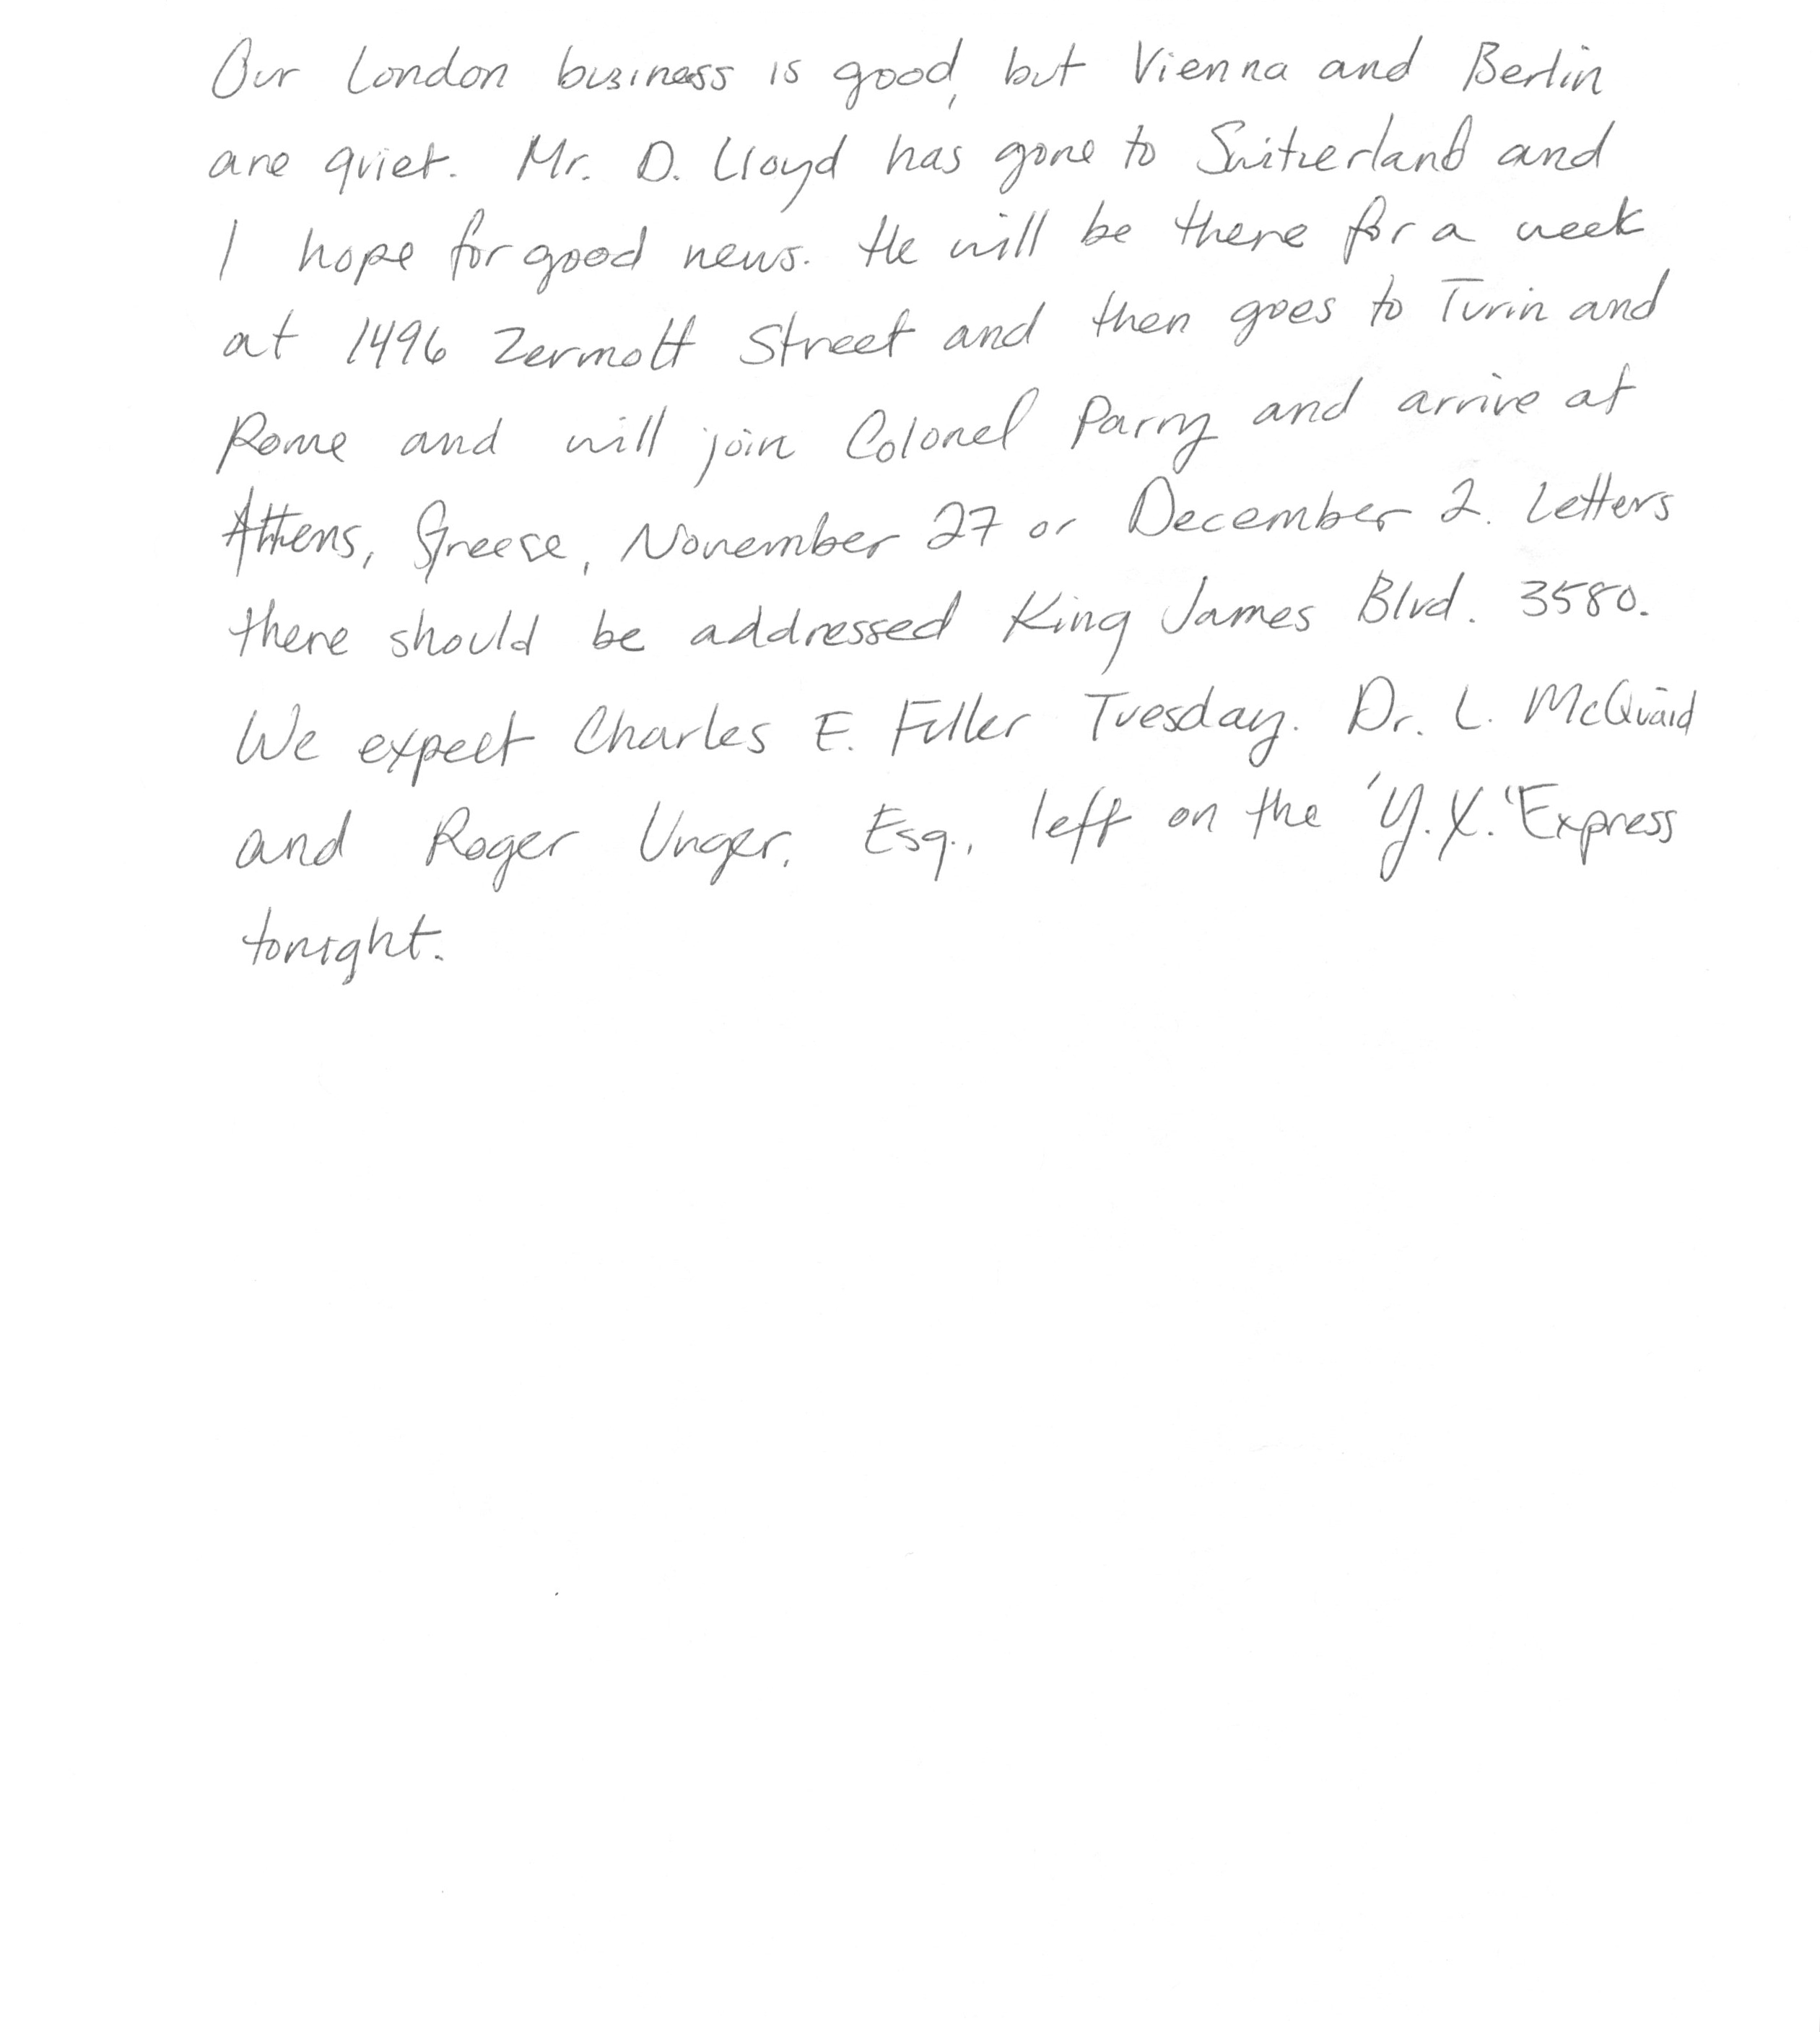 Our London business is good, but Vienna and Berlin
are quiet. Mr. D. Lloyd has gone to Switzerland and
I hope for good news. He will be there for a week
at 1496 Zermott Street and then goes to Turin and
Rome and will join Colonel Parry and arrive at
Athens, Greese, November 27 or December 2. Letters
there should be addressed King James Blvd. 3580.
We expect Charles E. Fuller Tuesday. Dr. L. McQuaid
and Roger Unger, Esq., left on the 'Y.X.' Express
tonight.